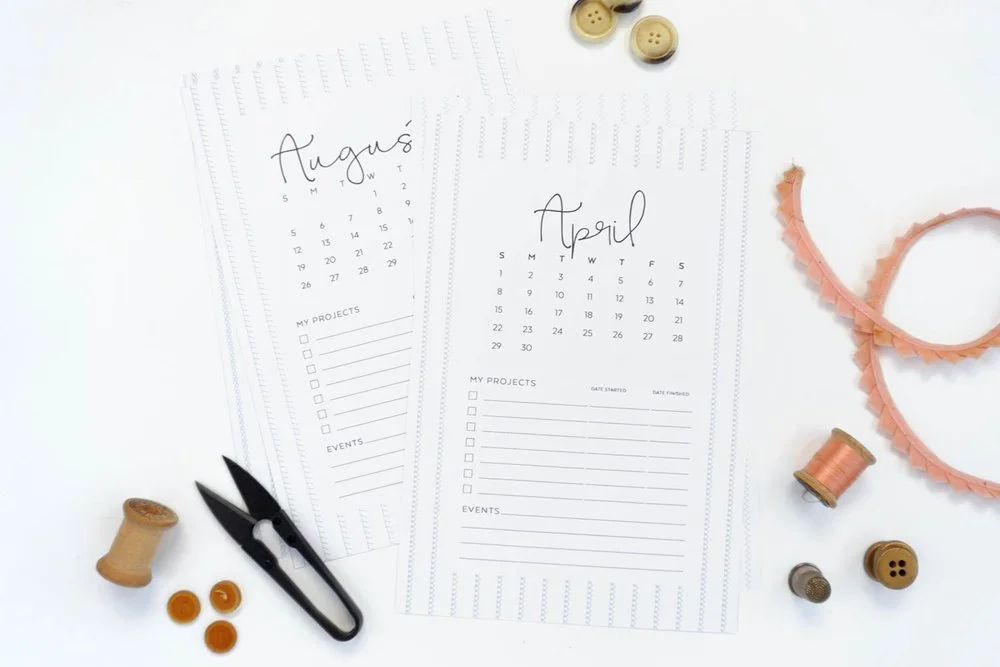 Augus
S M T W T
1 2
5 6 7 8 9
12 13 14 15
19 20 21 22
26 27 28 29
MY PROJECTS
EVENTS
April
S M T W T F S
1 2 3 4 5 6 7
8 9 10 11 12 13 14
15 16 17 18 19 20 21
22 23 24 25 26 27 28
29 30
MY PROJECTS DATE STARTED DATE FINISHED
EVENTS